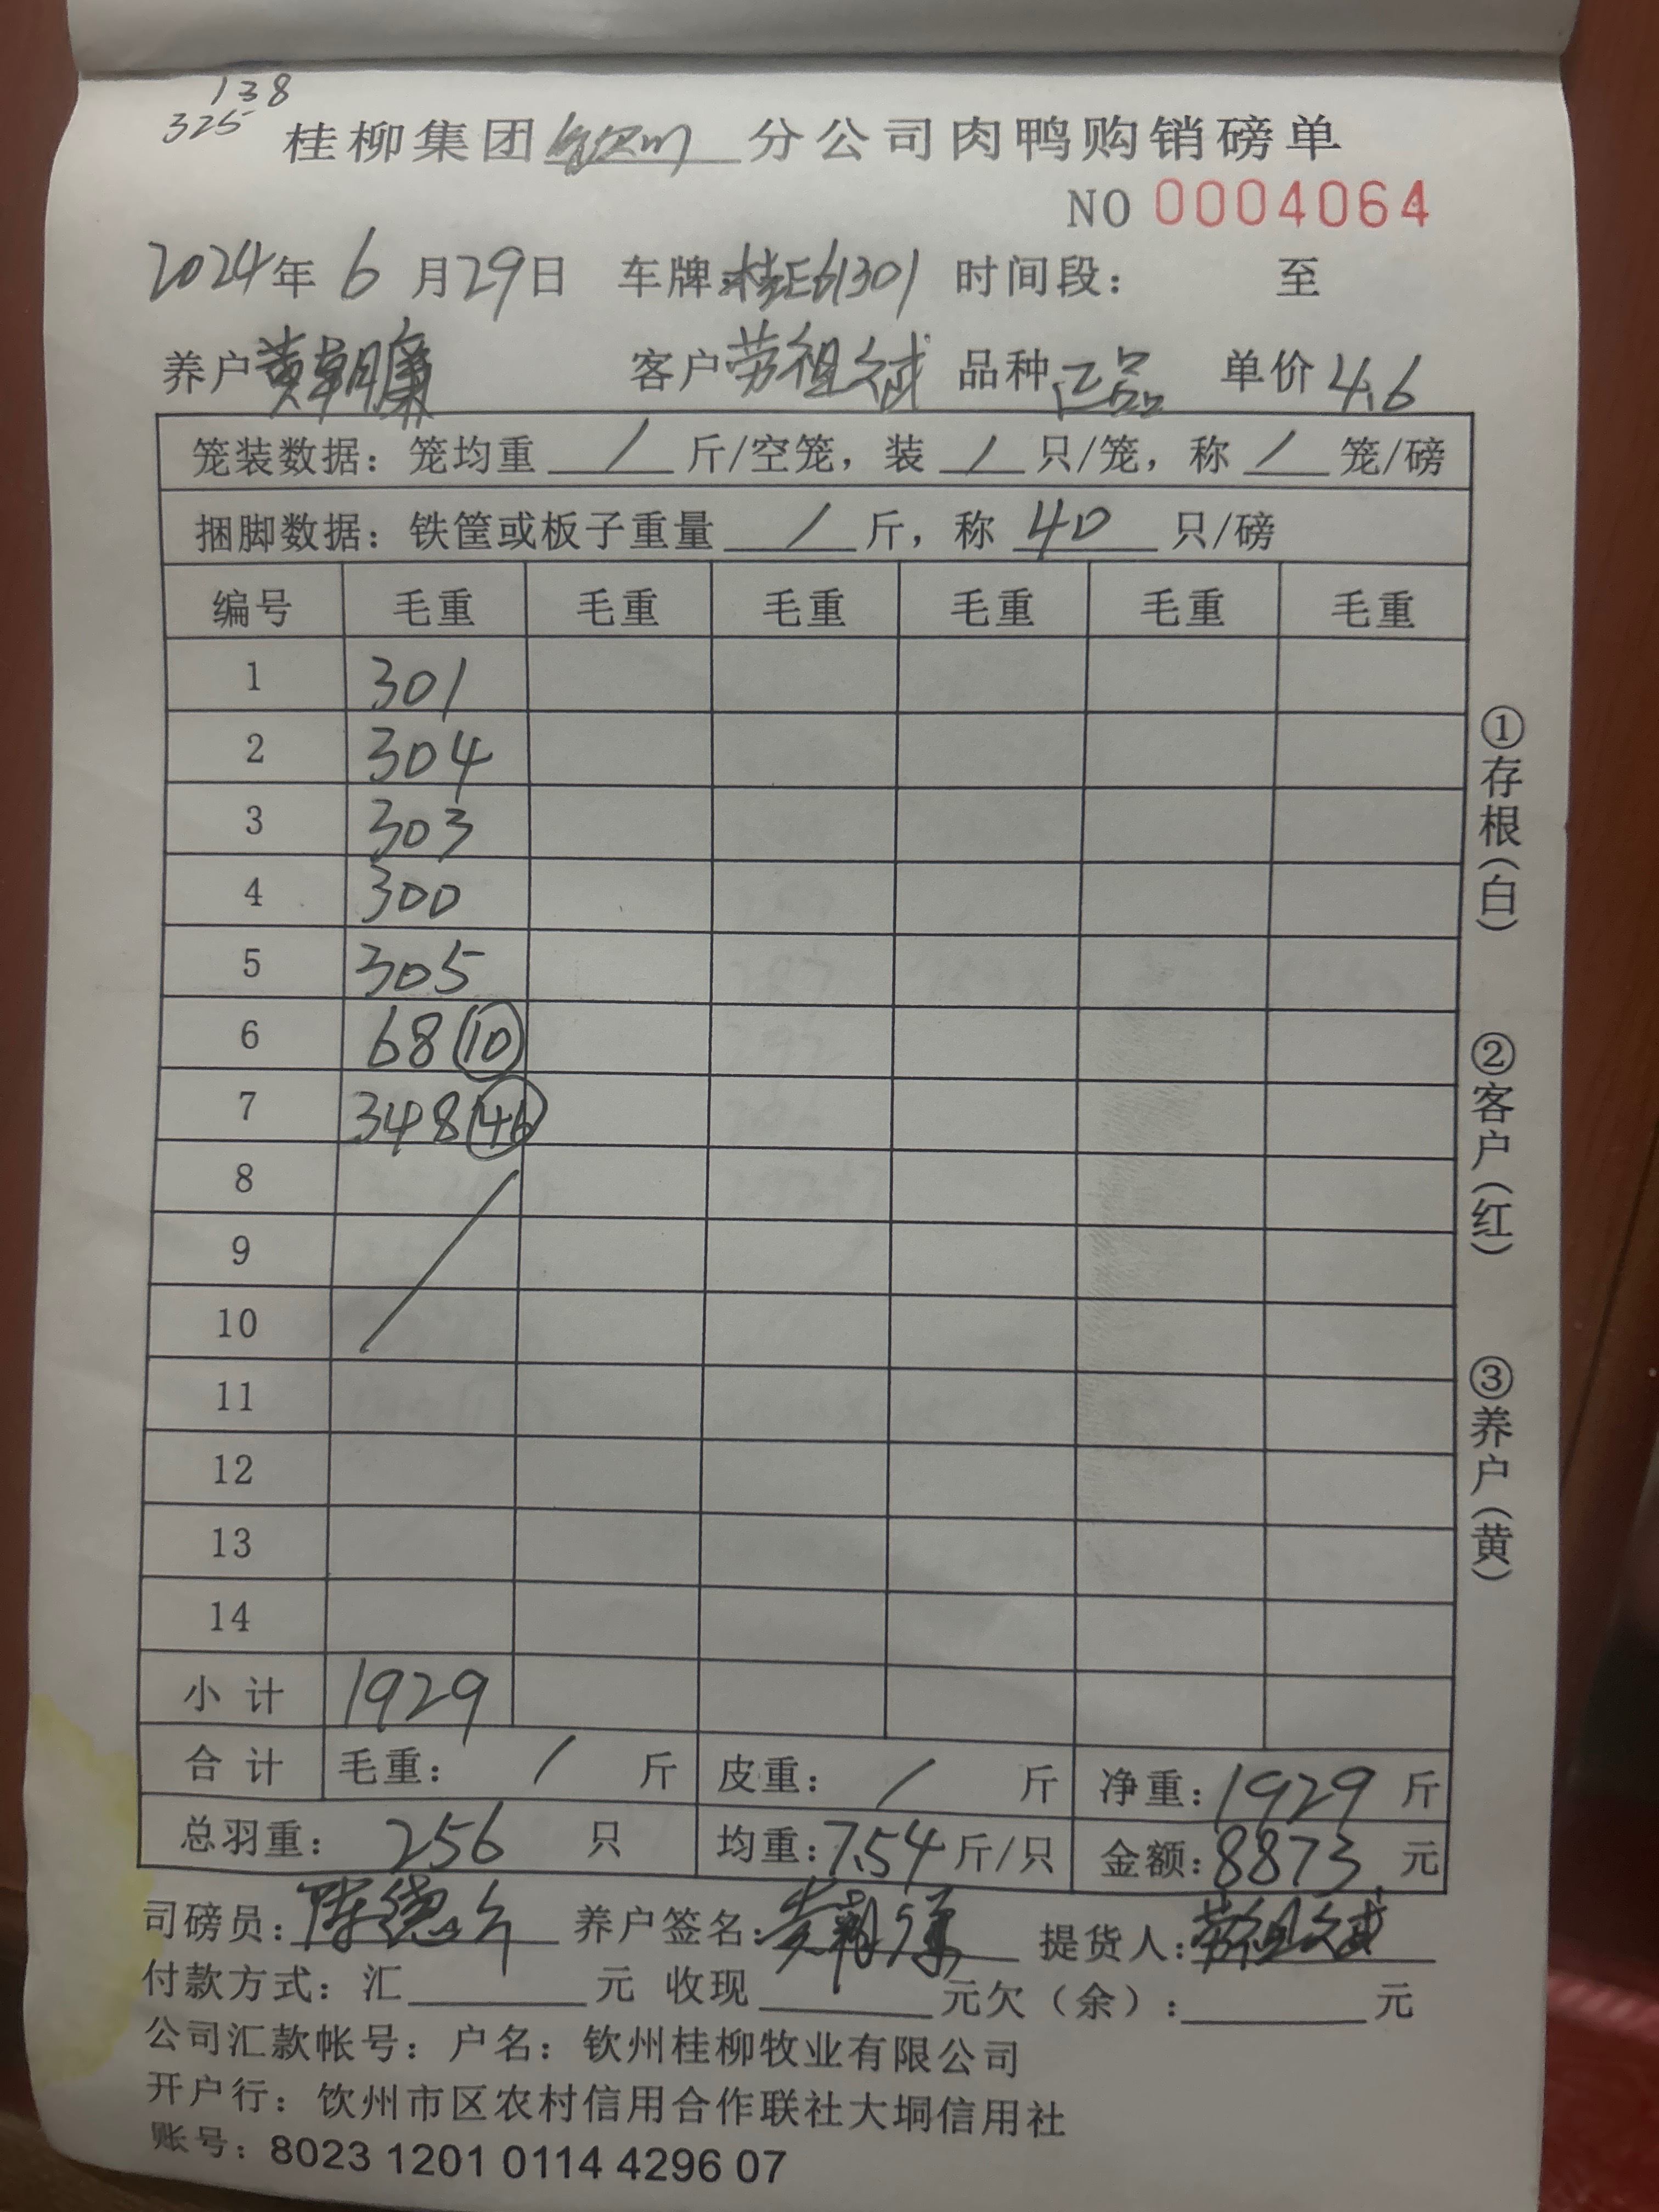 138
325
桂柳集团钦州分公司肉鸭购销磅单
NO 0004064
2024年 6 月29日 车牌:桂E61301 时间段： 至
养户黄朝廉 客户劳祖斌 品种正品 单价4.6
笼装数据：笼均重 / 斤/空笼，装 / 只/笼，称 / 笼/磅
捆脚数据：铁筐或板子重量 / 斤，称 40 只/磅
编号 毛重 毛重 毛重 毛重 毛重 毛重
1 301
2 304
3 303
4 300
5 305
6 68 (10)
7 348 (46)
8
9
10
11
12
13
14
小 计 1929
合 计 毛重： / 斤 皮重： / 斤 净重：1929 斤
总羽重： 256 只 均重：7.54斤/只 金额：8873 元
司磅员：陈德 养户签名： 提货人：劳祖斌
付款方式：汇 元 收现 元欠（余）： 元
公司汇款帐号：户名：钦州桂柳牧业有限公司
开户行：钦州市区农村信用合作联社大垌信用社
账号：8023 1201 0114 4296 07
①存根（白）
②客户（红）
③养户（黄）